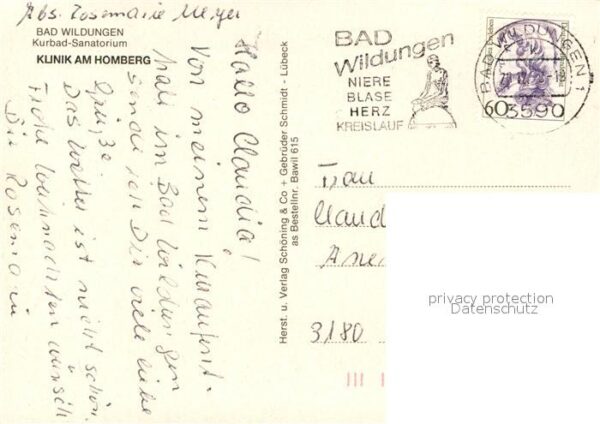 Abs. Rosemarie Meyer
BAD WILDUNGEN
Kurbad-Sanatorium
KLINIK AM HOMBERG
Hallo Claudia!
Von meinem Kuraufent-
halt im Bad Wildungen
sende ich Dir viele liebe
Grüße.
Das Wetter ist nicht schön.
Frohe Weihnachten wünscht
Die Rosemarie
Herst. u. Verlag Schöning & Co + Gebrüder Schmidt - Lübeck
as Bestellnr. Bawil 615
BAD
Wildungen
NIERE
BLASE
HERZ
KREISLAUF
BAD WILDUNGEN 1
3590
60
Frau
Claud
3180
privacy protection
Datenschutz